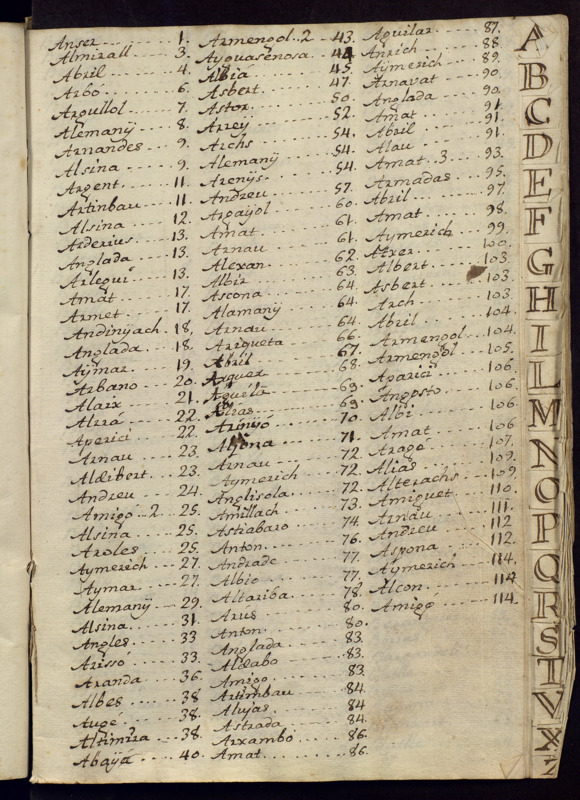 Anser 1.
Almirall 3.
Abril 4.
Arbó 6.
Argullol 7.
Alemanÿ 8.
Arnandes 9.
Alsina 9.
Argent 11.
Artinbau 11.
Alsina 12.
Arderius 13.
Anglada 13.
Arleguí 13.
Amat 17.
Armet 17.
Andinÿach 18,
Anglada 18.
Aÿmar 19.
Arbano 20.
Alaix 21.
Alzra 22.
Aperici 22.
Arnau 23.
Aldibert 23.
Andreu 24.
Amigó 2 25.
Alsina 25.
Aroles 25.
Aymerich 27.
Aymar 27.
Alemanÿ 29.
Alsina 31.
Angles 33
Arissó 33.
Aranda 36.
Albes 38
Auge 38.
Altimira 38.
Abaÿà 40.
Armengol 2 43.
Ayguasenosa 44
Albiá 45.
Asbert 47.
Astor 50.
Arreÿ 52.
Archs 54.
Alemanÿ 54.
Arenÿs 54.
Andreu 57.
Argaÿol 60.
Amat 61.
Arnau 61.
Alexan 62.
Albir 63.
Ascona 64.
Alamanÿ 64.
Arnau 64.
Arigueta 66.
Abril 67.
Arquer 68.
69.
69.
Arinÿó 70.
71.
Arnau 72.
Aymerich 72.
Anglisola 72.
Amillach 73.
Astiabaro 74.
Anton 76.
Andrade 77.
Albio 77.
Altariba 78.
Arús 80.
Anton 80.
Anglada 83.
Aldabo 83.
Amigo 83.
Artimbau 84.
Alujas 84
Astrada 84.
Arxambó 86.
Amat 86.
Aguilar 87.
Anrich 88.
Aÿmerich 89.
Arnavat 90.
Anglada 90.
Amat 91.
Abril 91.
Alau 91.
Amat 3 93.
Armadas 95.
Abril 97.
Amat 98.
Aymerich 99.
Axer 100.
Albert 103.
Asbert 103.
Arch 103.
Abril 104.
Armengol 104.
Armengol 105.
Aparici 106.
Angosto 106.
Albi 106.
Amat 106
Aragó 107.
Alias 109.
Alterachs 109.
Amiguet 110.
Arnau 111.
Andreu 112
Aspona 112.
Aÿmerich 114.
Alcon 114
Amigó 114.
A
B
C
D
E
F
G
H
I
L
M
N
O
P
Q
R
S
T
V
X